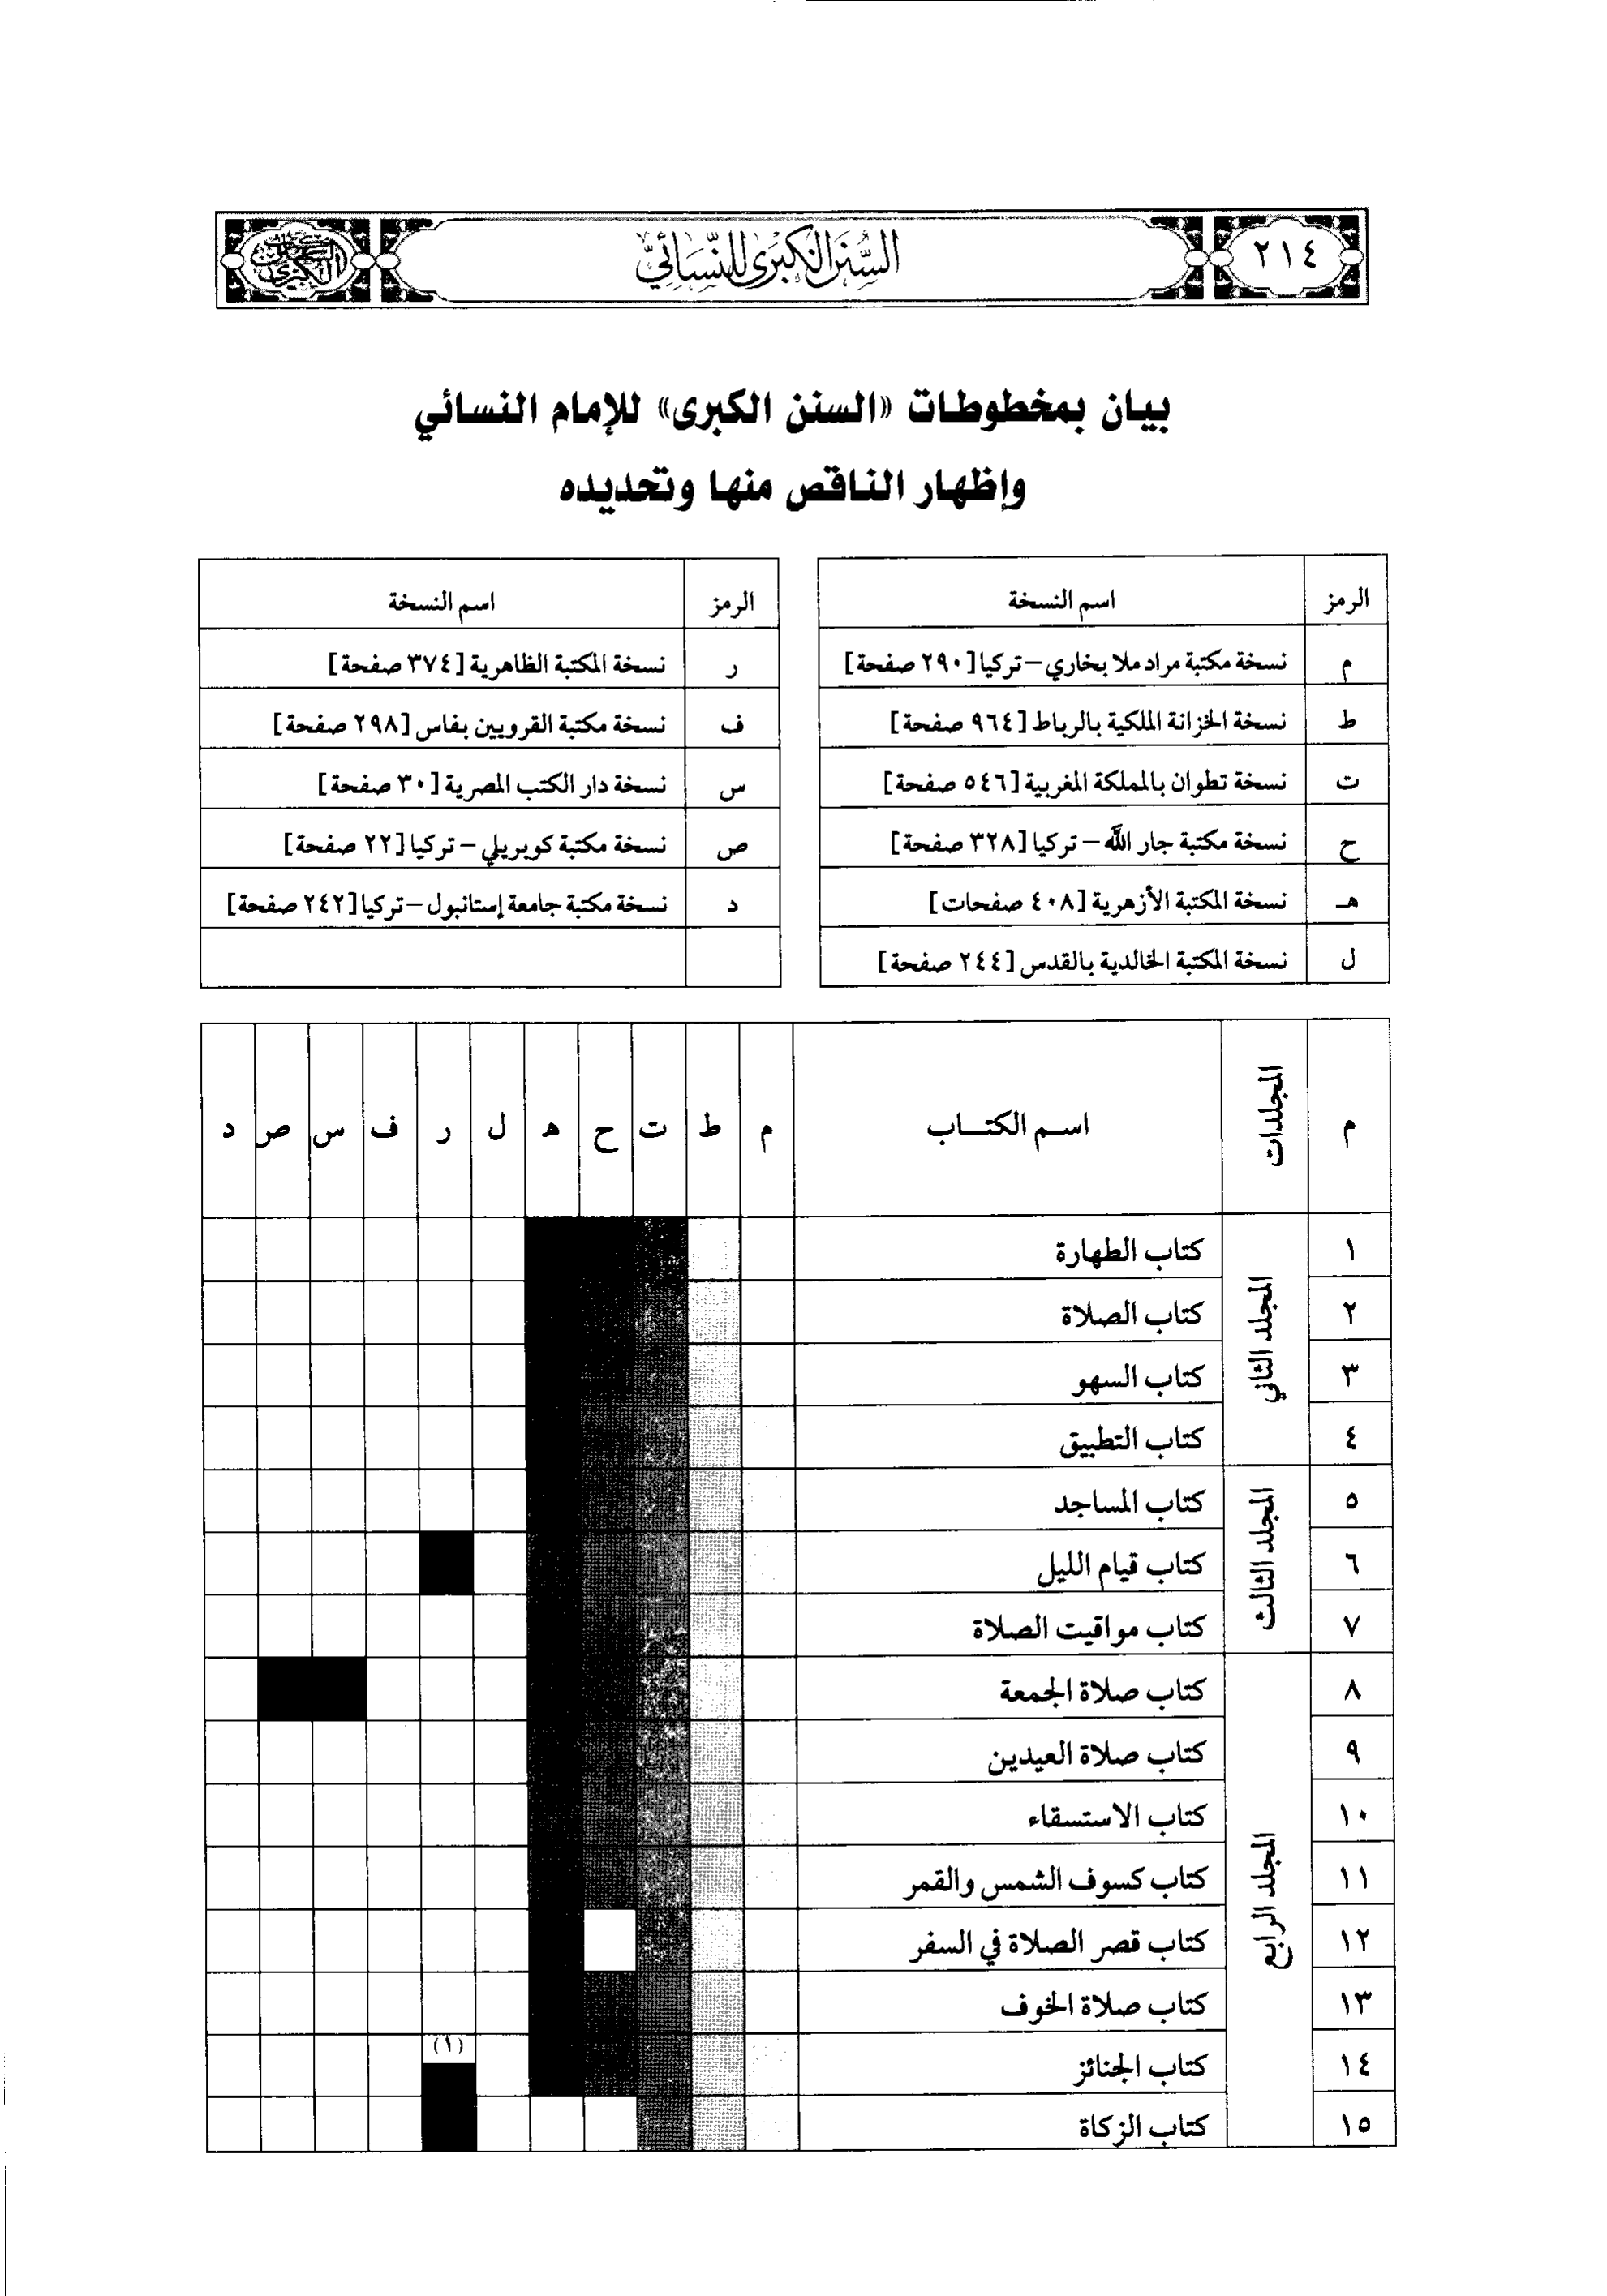 ٢١٤
السنن الكبرى للنسائي
بيان بمخطوطات «السنن الكبرى» للإمام النسائي
وإظهار الناقص منها وتحديده
الرمز اسم النسخة
م نسخة مكتبة مراد ملا بخاري – تركيا [٢٩٠ صفحة]
ط نسخة الخزانة الملكية بالرباط [٩٦٤ صفحة]
ت نسخة تطوان بالمملكة المغربية [٥٤٦ صفحة]
ح نسخة مكتبة جار الله – تركيا [٣٢٨ صفحة]
هـ نسخة المكتبة الأزهرية [٤٠٨ صفحات]
ل نسخة المكتبة الخالدية بالقدس [٢٤٤ صفحة]
الرمز اسم النسخة
ر نسخة المكتبة الظاهرية [٣٧٤ صفحة]
ف نسخة مكتبة القرويين بفاس [٢٩٨ صفحة]
س نسخة دار الكتب المصرية [٣٠ صفحة]
ص نسخة مكتبة كوبريلي – تركيا [٢٢ صفحة]
د نسخة مكتبة جامعة إستانبول – تركيا [٢٤٢ صفحة]
م المجلدات اسم الكتاب م ط ت ح هـ ل ر ف س ص د
المجلد الثاني
١ كتاب الطهارة
٢ كتاب الصلاة
٣ كتاب السهو
٤ كتاب التطبيق
المجلد الثالث
٥ كتاب المساجد
٦ كتاب قيام الليل
٧ كتاب مواقيت الصلاة
المجلد الرابع
٨ كتاب صلاة الجمعة
٩ كتاب صلاة العيدين
١٠ كتاب الاستسقاء
١١ كتاب كسوف الشمس والقمر
١٢ كتاب قصر الصلاة في السفر
١٣ كتاب صلاة الخوف
١٤ كتاب الجنائز (١)
١٥ كتاب الزكاة